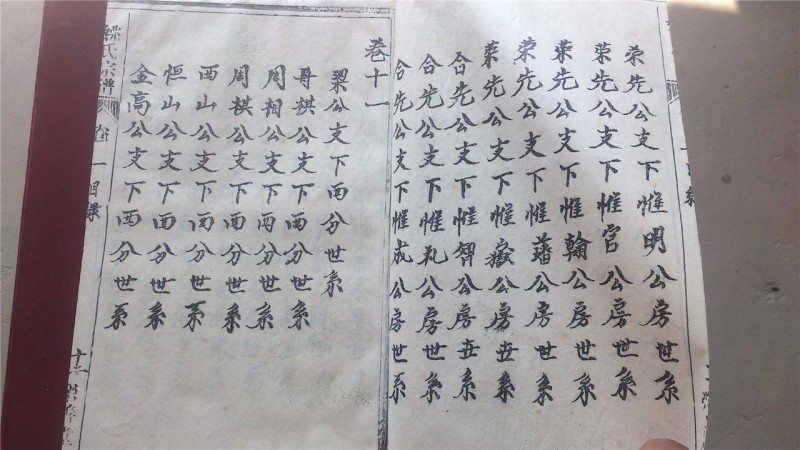 荣先公支下惟明公房世系
荣先公支下惟宫公房世系
荣先公支下惟翰公房世系
荣先公支下惟藩公房世系
荣先公支下惟嶽公房世系
合先公支下惟智公房世系
合先公支下惟礼公房世系
合先公支下惟成公房世系
卷十一
公支下西分世系
棋公支下西分世系
周相公支下西分世系
周棋公支下西分世系
西山公支下西分世系
恒山公支下西分世系
金高公支下西分世系
氏宗譜 卷一 目録